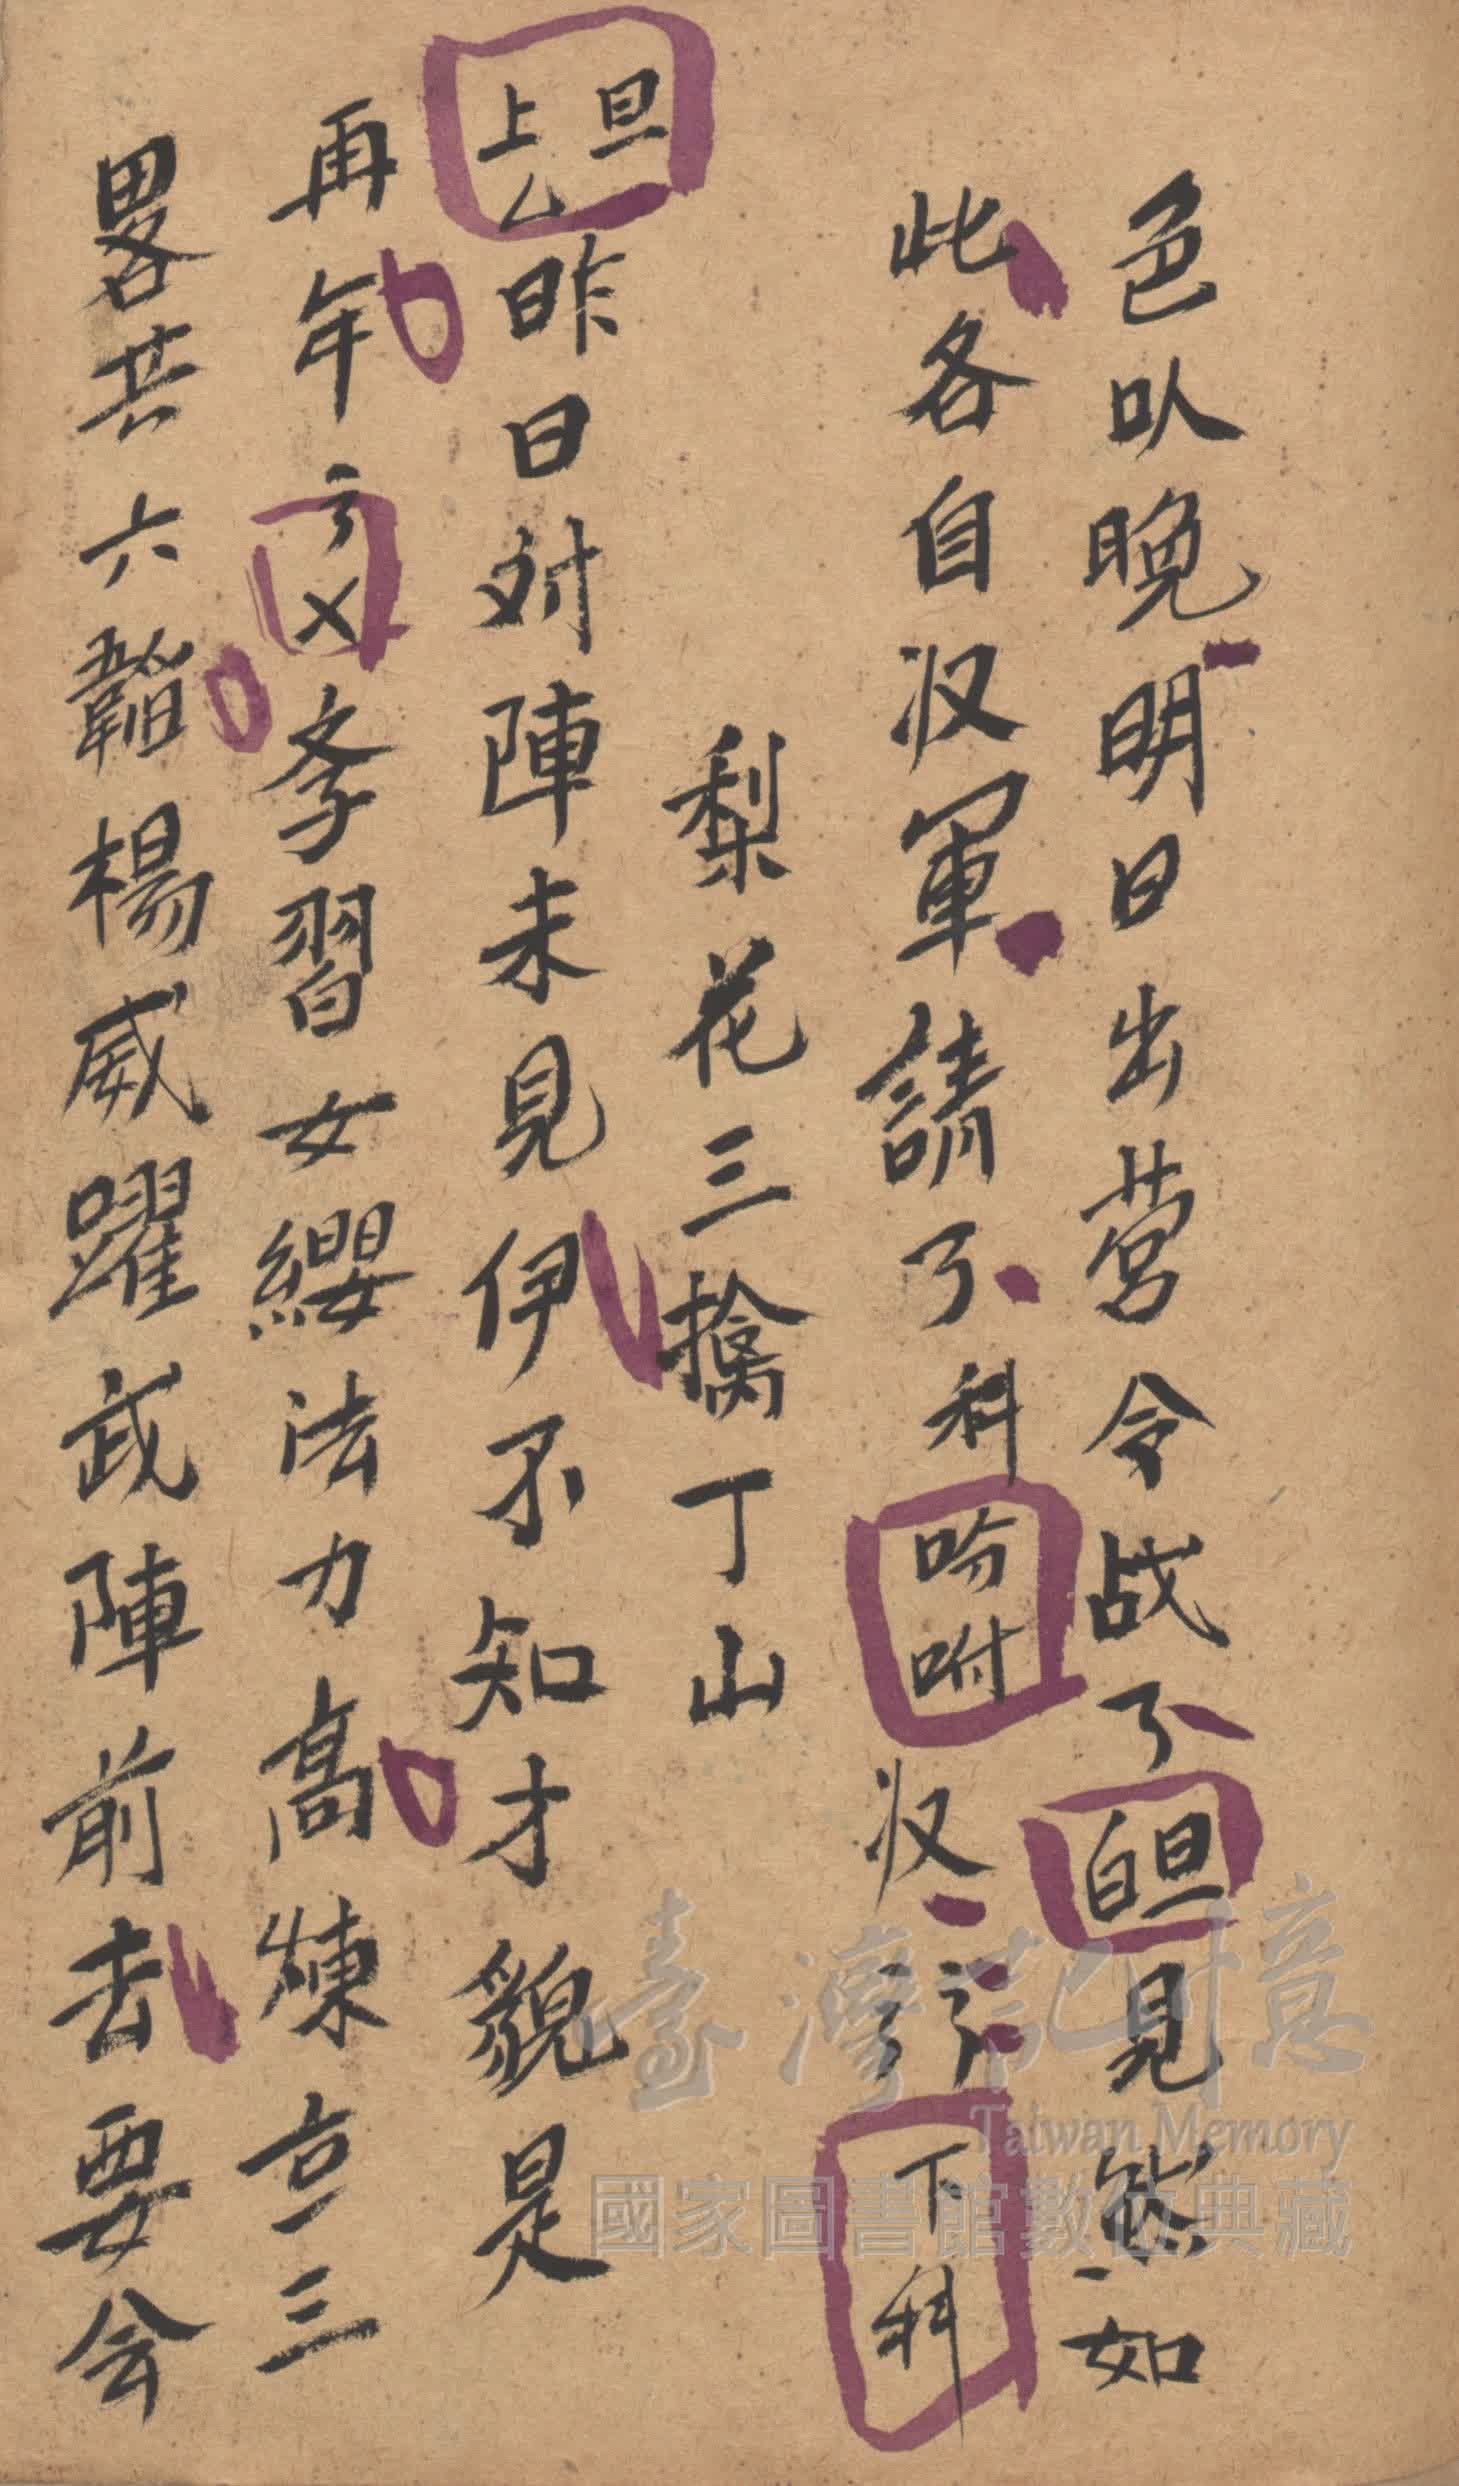 色叺晚明日出营令战了旦白見然如
此各自収軍請了科吩咐収〻請下科
梨花三擒丁山
旦上厶昨日対陣未見伊不知才貌是
再年㐅孝習女纓法力高煉言三
畧共六韜楊威躍武陣前去要会
臺灣記憶
Taiwan Memory
國家圖書館數位典藏